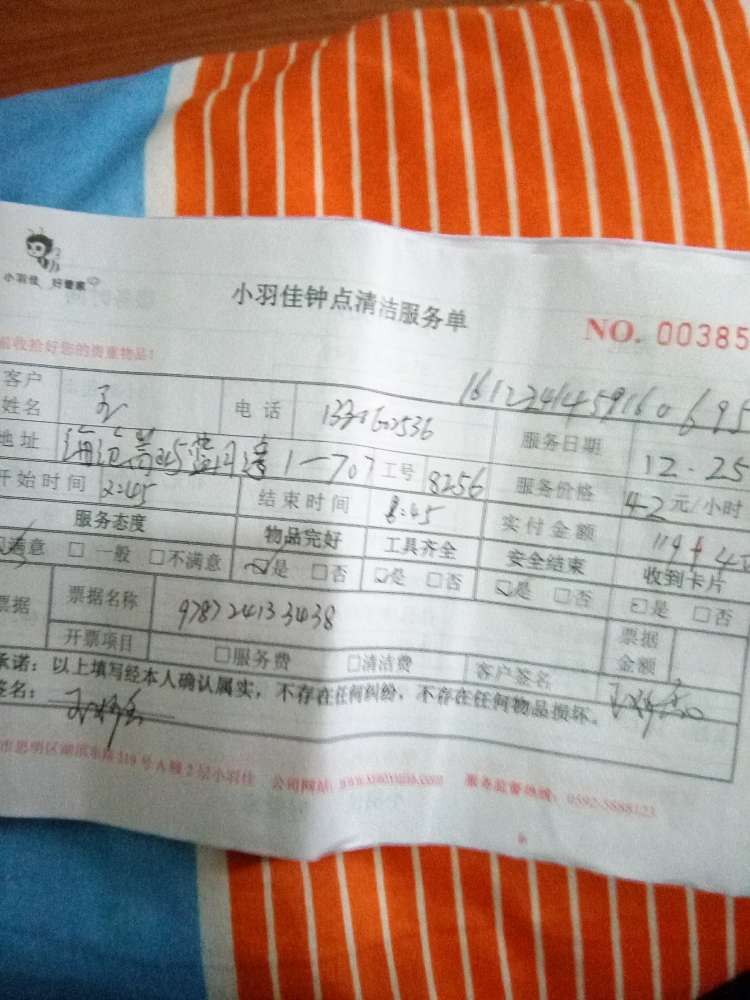 小羽佳 好管家
小羽佳钟点清洁服务单
NO. 00385
前收拾好您的贵重物品!
16122414459160695
客户姓名 电话 服务日期 12.25
地址 1-707 工号 8256 服务价格 42元/小时
开始时间 2:45 结束时间 8:45 实付金额
服务态度 物品完好 工具齐全 安全结束 收到卡片
满意 □一般 □不满意 ☑是 □否 ☑是 □否 ☑是 □否 ☑是 □否
票据 票据名称 9787241333438 票据金额
开票项目 □服务费 □清洁费 客户签名
承诺:以上填写经本人确认属实,不存在任何纠纷,不存在任何物品损坏。
签名:
市思明区湖滨东路319号A幢2层小羽佳 公司网站: 服务监督热线:0592-5888123